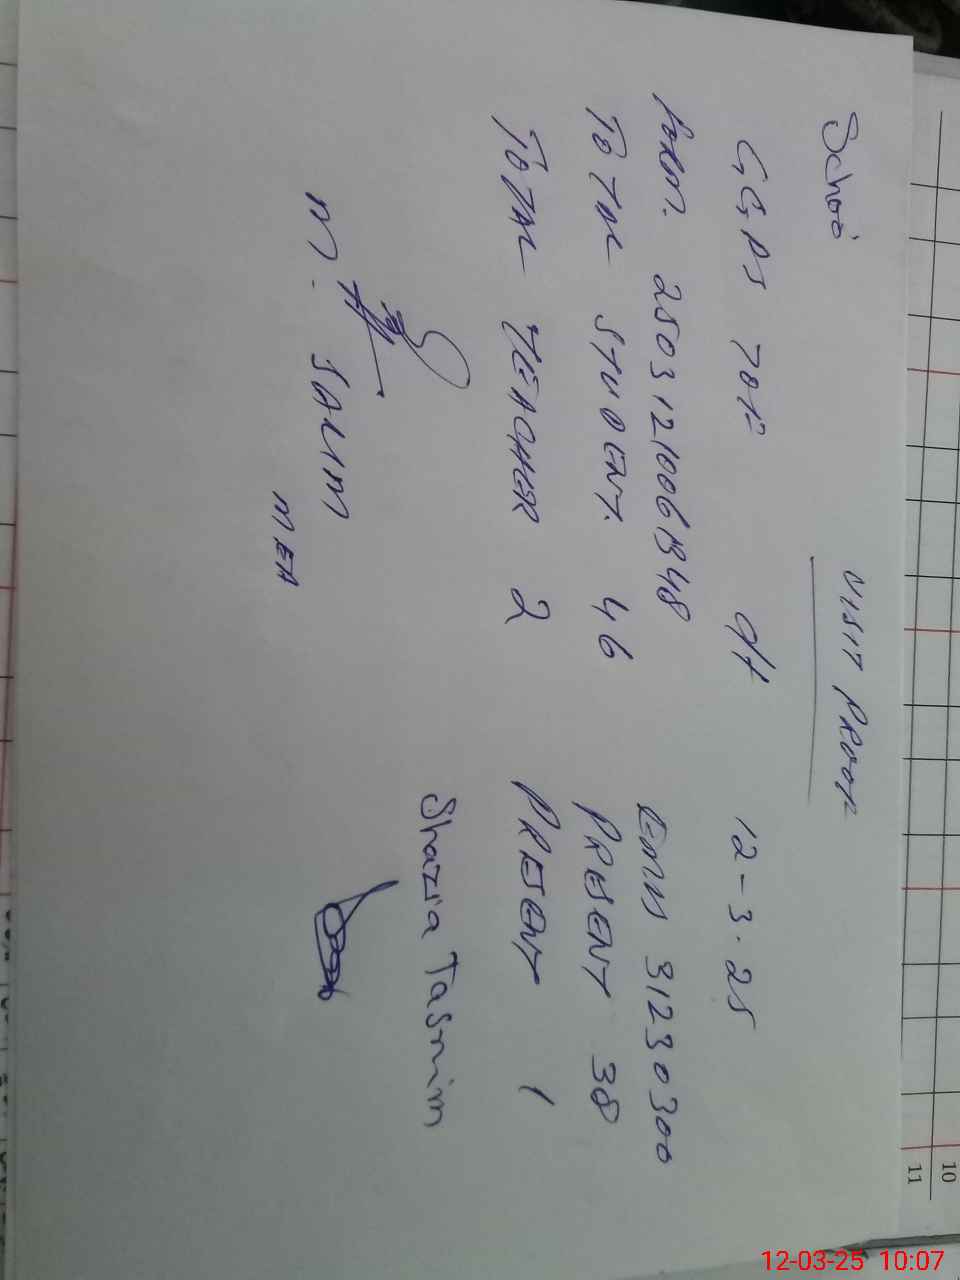 VISIT PROOF
School
GGPS 70 P dt 12-3.25
Form. 25031210061348 EMIS 31230300
TOTAL STUDENT. 46 PRESENT 38
TOTAL TEACHER 2 PRESENT 1
Shazia Tasnim
M. SALIM
MEA
10
11
12-03-25 10:07